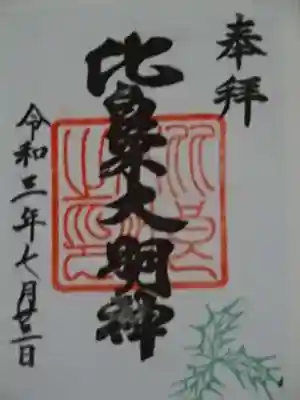 奉拝
比良木大明神
令和三年七月廿三日